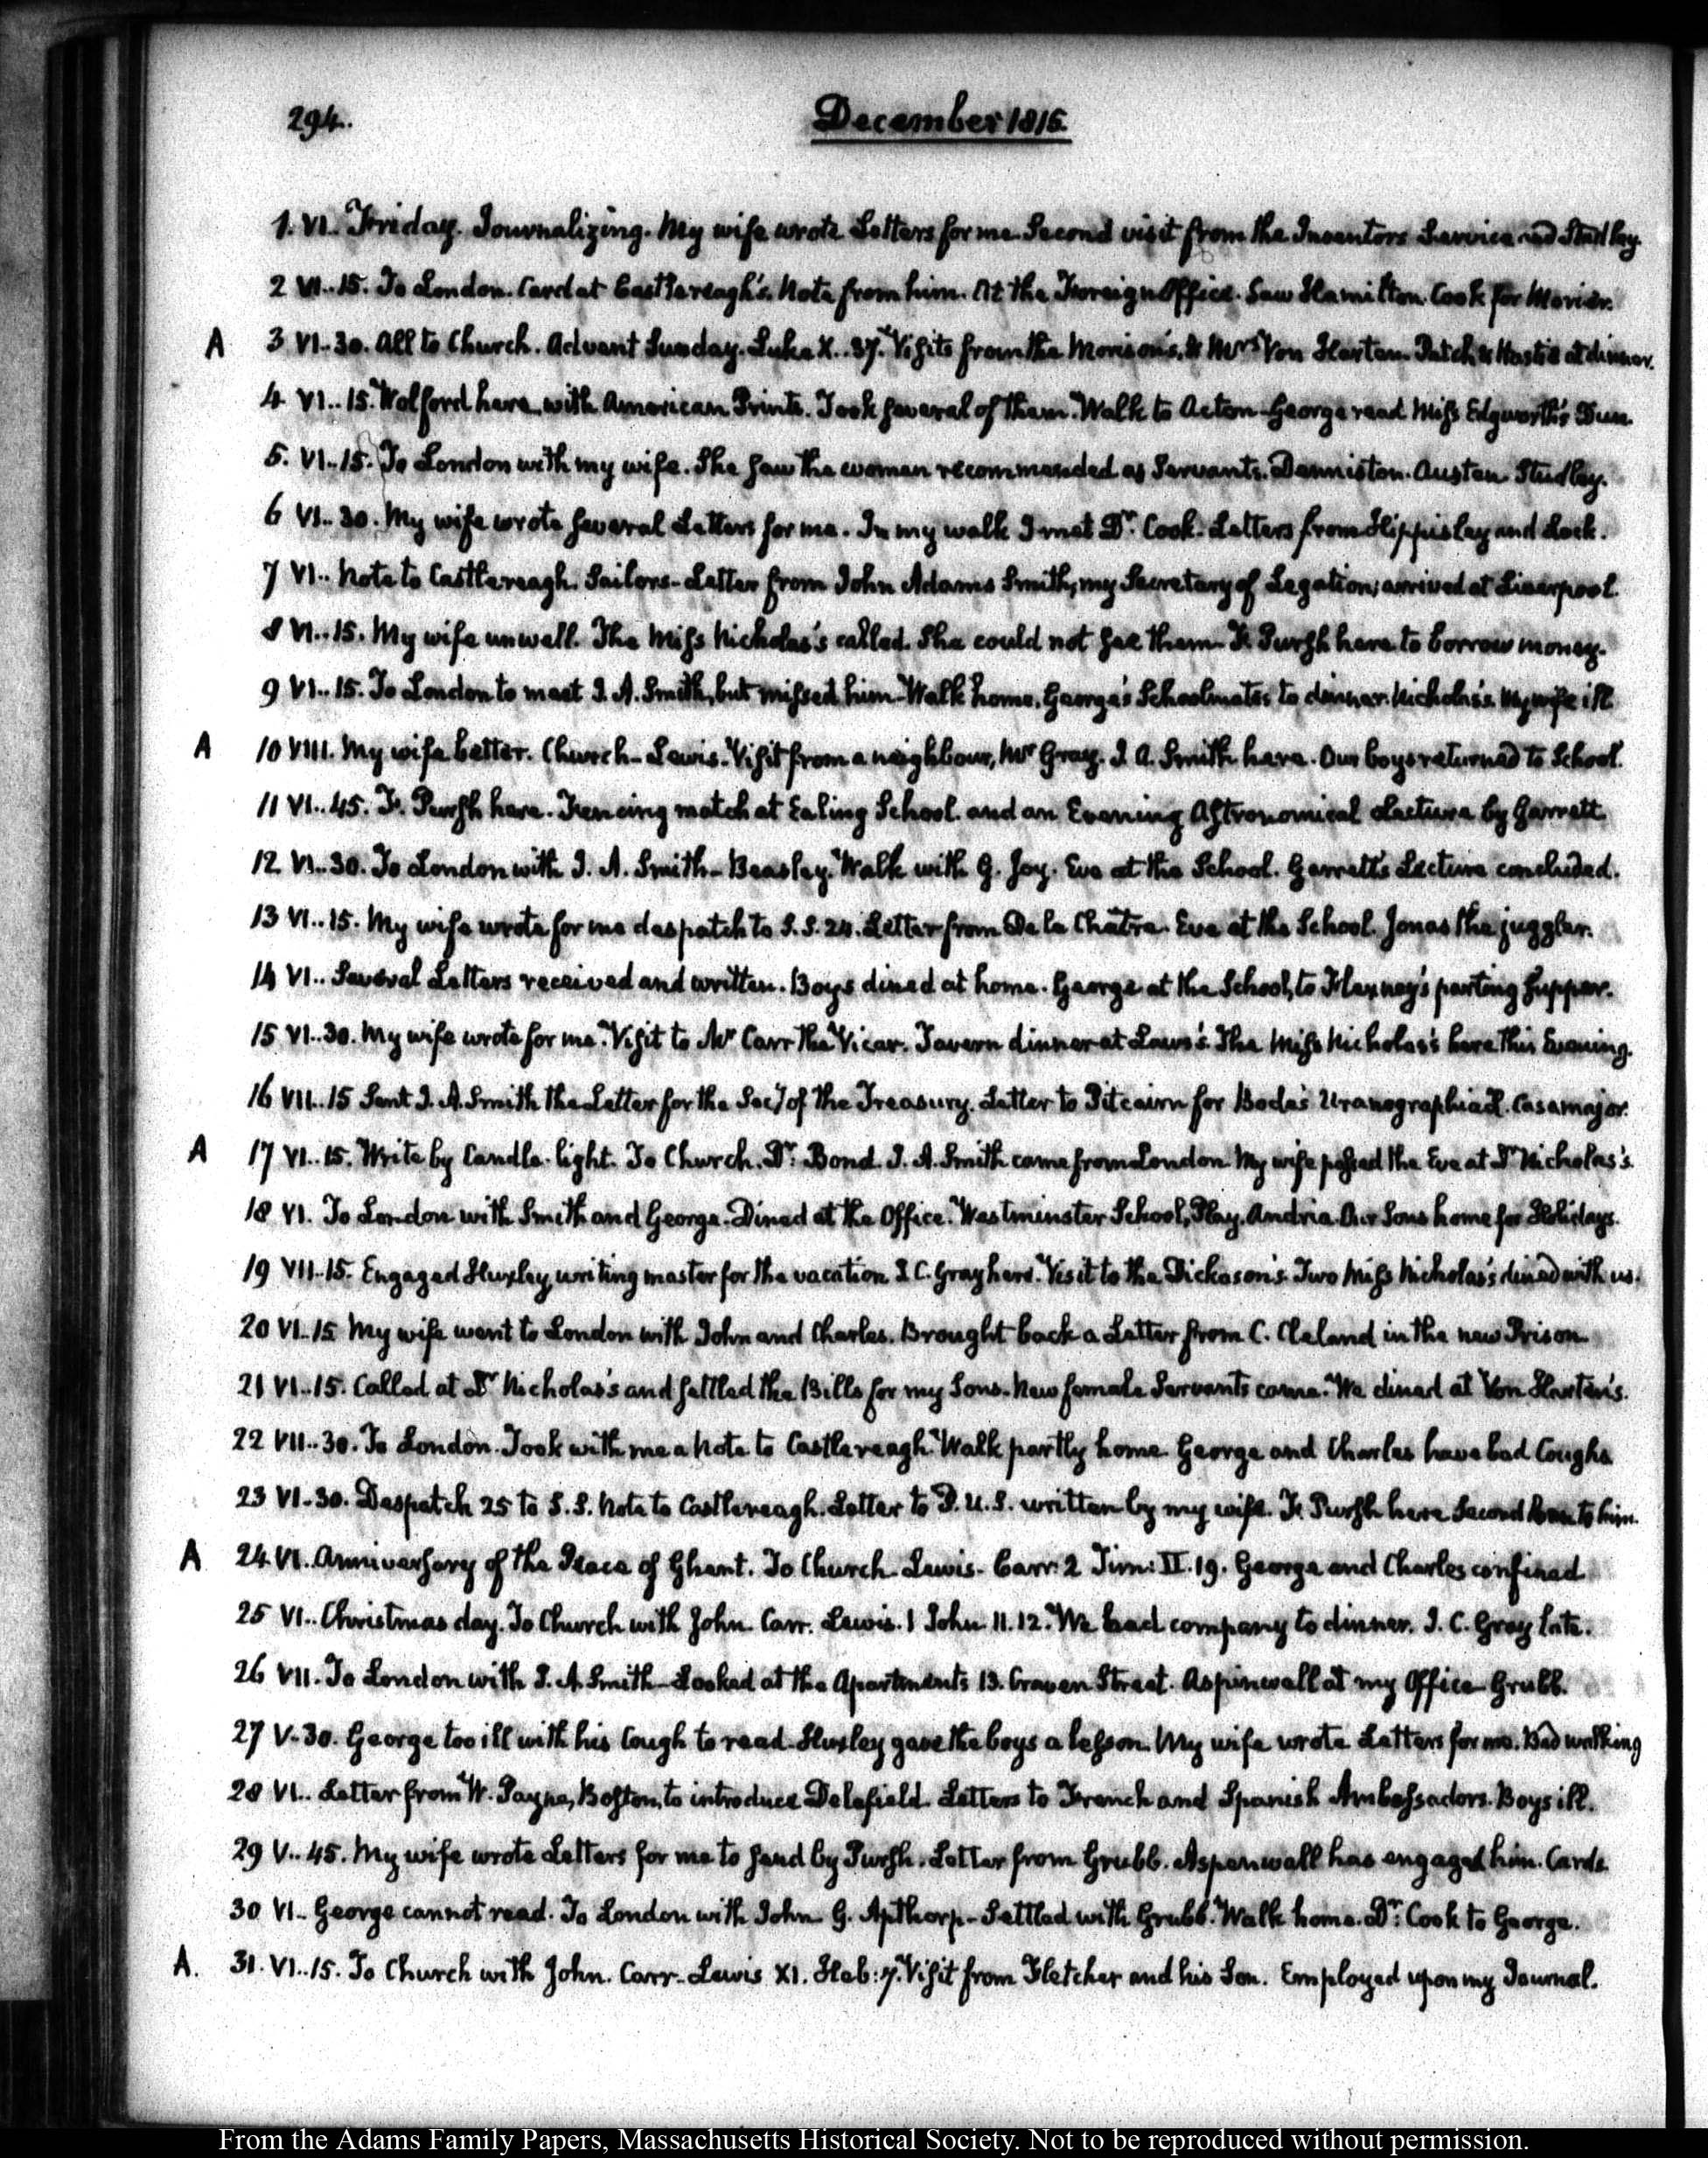 294.
December 1815.
1. VI. Friday. Journalizing. My wife wrote Letters for me. Second visit from the Inventors Service and Studley.
2 VI..15. To London. Card at Castlereagh's. Note from him. At the Foreign Office. Saw Hamilton. Cook for Morier.
A 3 VI..30. All to Church. Advent Sunday. Luke X..37. Visits from the Morison's, & Mrs Von Harten. Patch & Hastie at dinner.
4 VI..15. Wolford here with American Prints. Took several of them. Walk to Acton. George read Miss Edgworth's Dun.
5. VI..15. To London with my wife. She saw the women recommended as Servants. Denniston. Austen. Studley.
6 VI..30. My wife wrote several Letters for me. In my walk I met Dr. Cook. Letters from Hippisley and Lock.
7 VI.. Note to Castlereagh. Sailors. Letter from John Adams Smith, my Secretary of Legation; arrived at Liverpool.
8 VI..15. My wife unwell. The Miss Nicholas's called. She could not see them. F. Pursh here to borrow money.
9 VI..15. To London to meet J. A. Smith, but missed him. Walk home. George's Schoolmates to dinner. Nicholas's. My wife ill.
A 10 VIII. My wife better. Church. Lewis. Visit from a neighbour, Mr Gray. J. A. Smith here. Our boys returned to School.
11 VI..45. F. Pursh here. Fencing match at Ealing School. and an Evening Astronomical Lecture by Garrett.
12 VI..30. To London with J. A. Smith. Beasley. Walk with G. Joy. Eve at the School. Garrett's Lecture concluded.
13 VI..15. My wife wrote for me despatch to S.S. 24. Letter from De la Châtre. Eve at the School. Jonas the juggler.
14 VI.. Several Letters received and written. Boys dined at home. George at the School, to parting supper.
15 VI..30. My wife wrote for me. Visit to Mr Carr the Vicar. Tavern dinner at Laws's. The Miss Nicholas's here this Evening.
16 VII..15 Sent J. A. Smith the Letter for the Secy of the Treasury. Letter to Pitcairn for Bode's Uranographia. Casamajor.
A 17 VI..15. Write by Candle-light. To Church. Dr. Bond. J. A. Smith came from London. My wife passed the Eve at Dr Nicholas's.
18 VI. To London with Smith and George. Dined at the Office. Westminster School, Play. Andria. Our Sons home for Holidays.
19 VII..15. Engaged Huxley, writing master for the vacation. J. C. Gray here. Visit to the Dickason's. Two Miss Nicholas's dined with us.
20 VI..15 My wife went to London with John and Charles. Brought back a Letter from C. Cleland in the new Prison.
21 VI..15. Called at Dr Nicholas's and settled the Bills for my Sons. New female Servants came. We dined at Von Harten's.
22 VII..30. To London. Took with me a Note to Castlereagh. Walk partly home. George and Charles have bad Coughs.
23 VI-30. Despatch 25 to S.S. Note to Castlereagh. Letter to P.U.S. written by my wife. F. Pursh here second loan to him.
A 24 VI. Anniversary of the Peace of Ghent. To Church. Lewis. Carr. 2 Tim: II. 19. George and Charles confined.
25 VI.. Christmas day. To Church with John. Carr. Lewis. 1 John II. 12. We had company to dinner. J. C. Gray late.
26 VII. To London with J. A. Smith. Looked at the Apartments 13. Craven Street. Aspinwall at my Office. Grubb.
27 V-30. George too ill with his Cough to read. Huxley gave the boys a lesson. My wife wrote Letters for me. Bad walking
28 VI.. Letter from W. Payne, Boston, to introduce Delafield. Letters to French and Spanish Ambassadors. Boys ill.
29 V..45. My wife wrote Letters for me to send by Pursh. Letter from Grubb. Aspenwall has engaged him. Cards.
30 VI.. George cannot read. To London with John. G. Apthorp. Settled with Grubb. Walk home. Dr. Cook to George.
A. 31. VI..15. To Church with John. Carr. Lewis XI. Heb: 7. Visit from Fletcher and his Son. Employed upon my Journal.
From the Adams Family Papers, Massachusetts Historical Society. Not to be reproduced without permission.